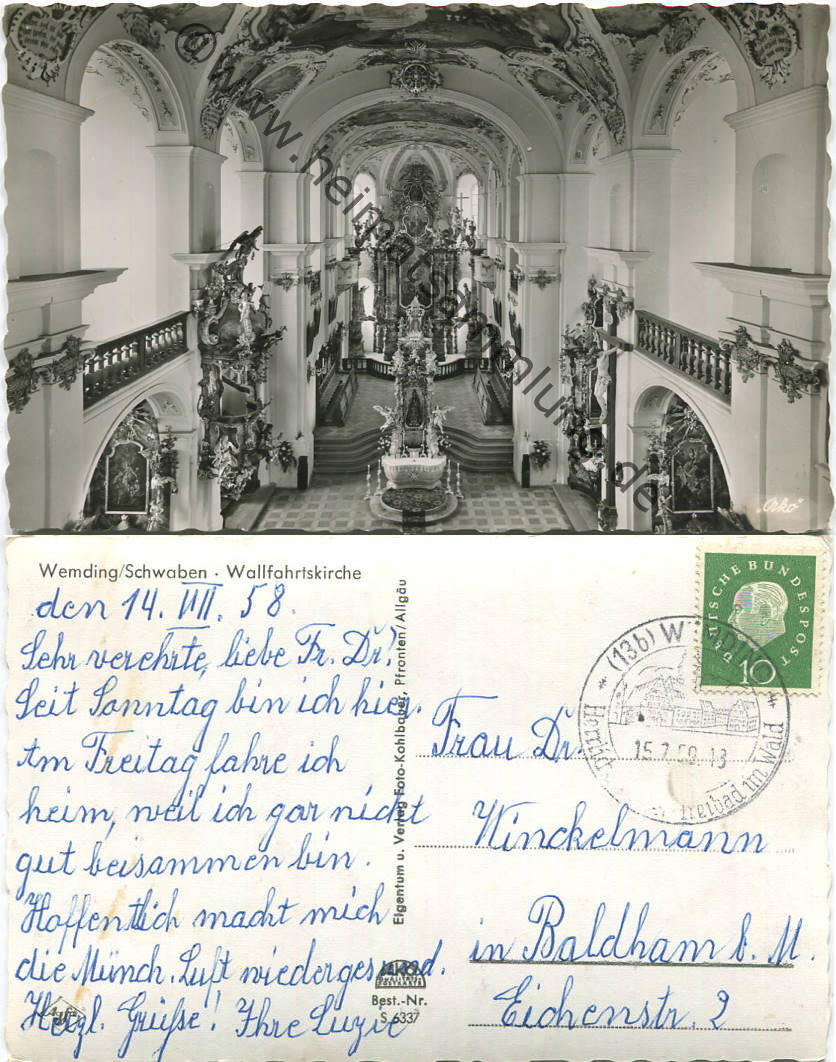 © www.heimatsammlung.de
"Orko"
Wemding/Schwaben · Wallfahrtskirche
den 14. VII. 58.
Sehr verehrte, liebe Fr. Dr!
Seit Sonntag bin ich hier.
Am Freitag fahre ich
heim, weil ich gar nicht
gut beisammen bin.
Hoffentlich macht mich
die Münch. Luft wieder gesund.
Herzl. Grüße! Ihre Luzie
Eigentum u. Verlag Foto-Kohlbauer, Pfronten/Allgäu
QUALITÄTS
POSTKARTE
Best.-Nr.
S 6337
Agfa
DEUTSCHE BUNDESPOST
10
(13b) WEMDING
15.7.59.-18
Freibad im Wald
Frau Dr.
Winckelmann
in Baldham b. M.
Eichenstr. 2